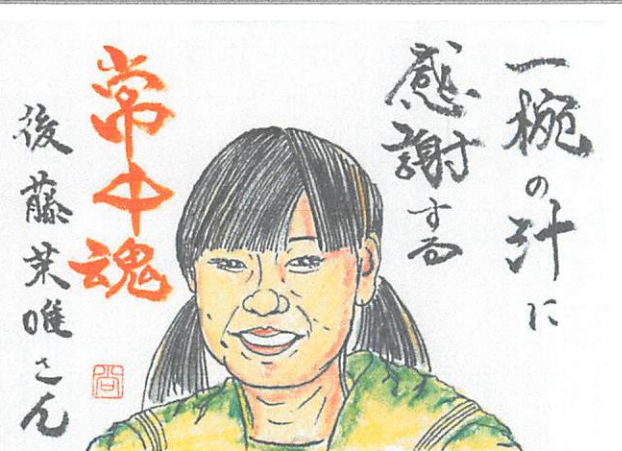 一椀の汁に
感謝する
常中魂
後藤茉唯さん
尚